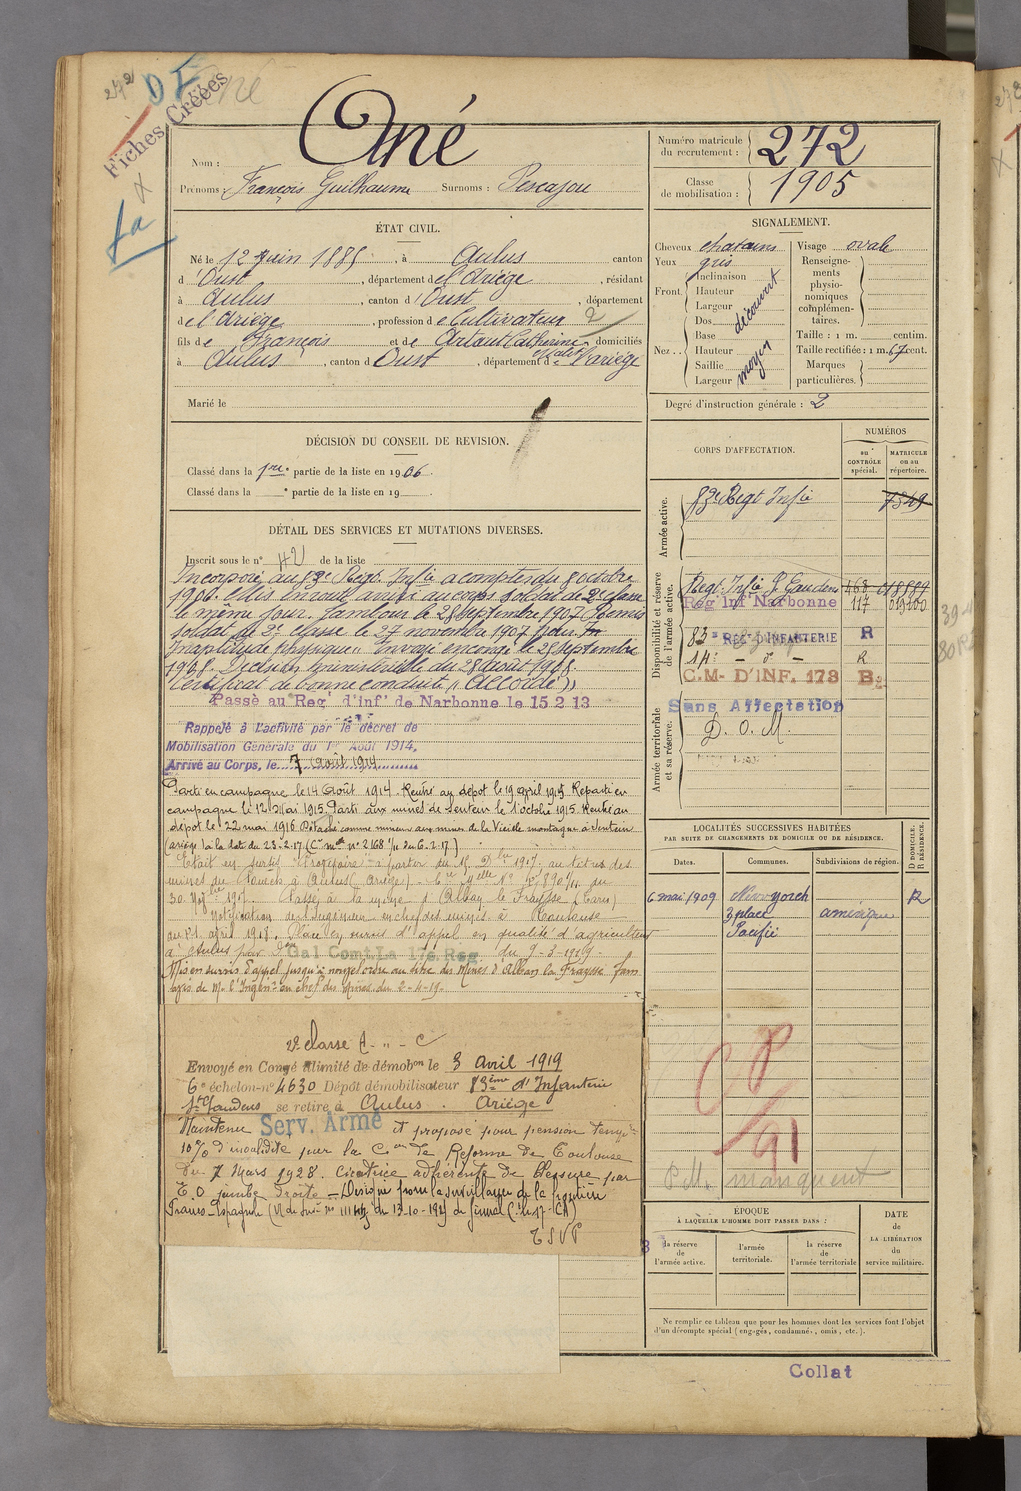 272
Fiches Créées
Nom : Ané
Prénoms : François Guilhaume Surnoms : Pescajou
Numéro matricule du recrutement : 272
Classe de mobilisation : 1905
ÉTAT CIVIL.
Né le 12 juin 1885, à Aulus canton
d'Oust, département de l'Ariège, résidant
à Aulus, canton d'Oust, département
de l'Ariège, profession de Cultivateur
fils de François et de Artaut Catherine domiciliés
à Aulus, canton d Oust, département de l'ariège
Marié le
DÉCISION DU CONSEIL DE REVISION.
Classé dans la 1re partie de la liste en 1906.
Classé dans la e partie de la liste en 19
DÉTAIL DES SERVICES ET MUTATIONS DIVERSES.
Inscrit sous le n° 42 de la liste
Incorporé au 83e Régt. Infie a compter du 8 octobre
1906. Mis en route arrivé au corps soldat de 2e classe
le même jour. Tambour le 28 septembre 1907 Remis
soldat de 2e classe le 27 novembre 1907 pour
Inaptitude physique". Envoyé en congé le 25 septembre
1908.
Certificat de bonne conduite "Accordé"
Passé au Reg' d'inf' de Narbonne le 15.2 13
Rappelé à l'activité par le décret de
Mobilisation Générale du 1er Août 1914,
Arrivé au Corps, le 7 Août 1914
Parti en campagne le 14 Août 1914. Rentré au dépôt le 19 avril 1915 Reparti en
campagne le 12 Mai 1915. Parti aux mines de Sentein le 1 octobre 1915. Rentré au
dépôt le 22 mai 1916 Détaché comme mineur aux mines de la Vieille montagne à Sentein
(ariège) à la date du 23-2-17. (C. n° 2168 du 6.2.17.)
mines du à Aulus (Ariège)
30 9bre 1917. Passé à la mine d'Alban le Fraysse (Tarn)
notification de l'Ingénieur en chef des mines à Toulouse
du 21 avril 1918. Placé en sursis d'appel en qualité d'agriculteur
à Aulus pour Gal Comt. La 17e Reg. du 9-3-1919.
Mis en sursis d'appel jusqu'à nouvel ordre au titre des Mines d'Alban la Fraysse Tarn
avis de Mr l'Ingénr en chef des Mines du 2-4-19.
Envoyé en Congé illimité de démobon le 3 Avril 1919
6e échelon-n° 4630 Dépôt démobilisateur 83ème d'Infanterie
St Gaudens se retire à Aulus. Ariège
Maintenu Serv. Armé et proposé pour pension tempre
10% d'invalidité par la Con de Réforme de Toulouse
du 7 Mars 1928. Cicatrice adhérente de blessure par
E.O jambe droite - Désigné pour la surveillance de la frontière
Franco-Espagnole
TSVP
SIGNALEMENT.
Cheveux chatains
Yeux gris
Front. Inclinaison
Hauteur
Largeur
découvert
Nez . . Dos
Base
Hauteur
Saillie
Largeur
moyen
Visage ovale
Renseignements physionomiques complémentaires.
Taille : 1 m. centim.
Taille rectifiée : 1 m. 67 cent.
Marques particulières.
Degré d'instruction générale : 2
CORPS D'AFFECTATION.
NUMÉROS
au CONTRÔLE spécial.
MATRICULE ou au répertoire.
Armée active.
83e Régt Infie 7549
Disponibilité et réserve de l'armée active.
Régt. Infie St Gaudens 468 018889
Reg' inf' Narbonne 117 019200
83e REGt D'INFANTERIE R
14e - do - R
C.M- D'INF. 173 B2
Armée territoriale et sa réserve.
Sans Affectation
D. O. M.
LOCALITÉS SUCCESSIVES HABITÉES
PAR SUITE DE CHANGEMENTS DE DOMICILE OU DE RÉSIDENCE.
Dates. Communes. Subdivisions de région.
D DOMICILE. R RÉSIDENCE.
6 mai 1909 New yorch amérique R
3 place
Pacific
CP
91
P.M. manquent
ÉPOQUE
À LAQUELLE L'HOMME DOIT PASSER DANS :
la réserve de l'armée active.
l'armée territoriale.
la réserve de l'armée territoriale
DATE de LA LIBÉRATION du service militaire.
Ne remplir ce tableau que pour les hommes dont les services font l'objet
d'un décompte spécial (engagés, condamnés, omis, etc.).
Collat